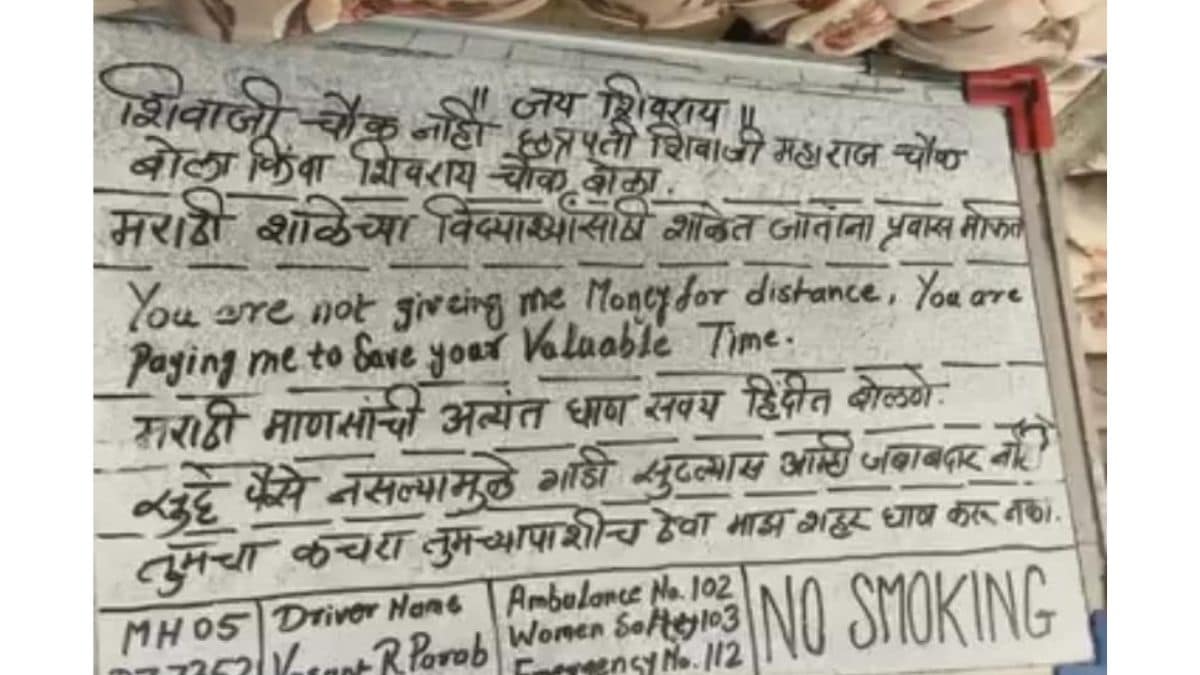 " जय शिवराय "
शिवाजी चौक नाही छत्रपती शिवाजी महाराज चौक
बोला किंवा शिवराय चौक बोला.
मराठी शाळेच्या विद्यार्थ्यांसाठी शाळेत जातांना प्रवास मोफत
You are not giveing me Money for distance, You are
Paying me to Save your Valuable Time.
मराठी माणसांची अत्यंत घाण सवय हिंदीत बोलणे.
सुट्टे पैसे नसल्यामुळे गाडी सुटल्यास आम्ही जबाबदार नाही
तुमचा कचरा तुमच्यापाशीच ठेवा माझ शहर घाण करू नका.
MH05
Driver Name
R Parab
Ambulance No. 102
Women Saftey 103
Emergency No. 112
NO SMOKING